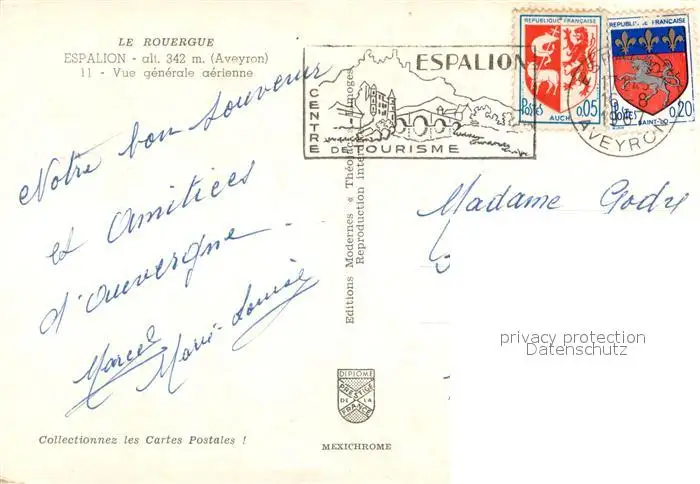 LE ROUERGUE
ESPALION - alt. 342 m. (Aveyron)
11 - Vue générale aérienne
Notre bon souvenir
et amitiées
d'auvergne.
Marcel
Marie-Louise
Collectionnez les Cartes Postales !
Editions Modernes « Théojac » Limoges
Reproduction inter
DIPLOME
PRESTIGE
DE LA
FRANCE
MEXICHROME
ESPALION
CENTRE
DE TOURISME
REPUBLIQUE FRANÇAISE
POSTES
0,05
AUCH
REPUBLIQUE FRANÇAISE
POSTES
0,20
SAINT-LO
AVEYRON
Madame
privacy protection
Datenschutz